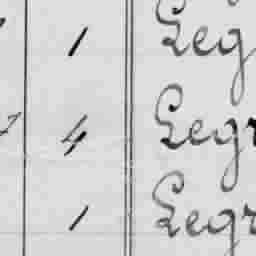 1 Leg
4 Legr
1 Legr